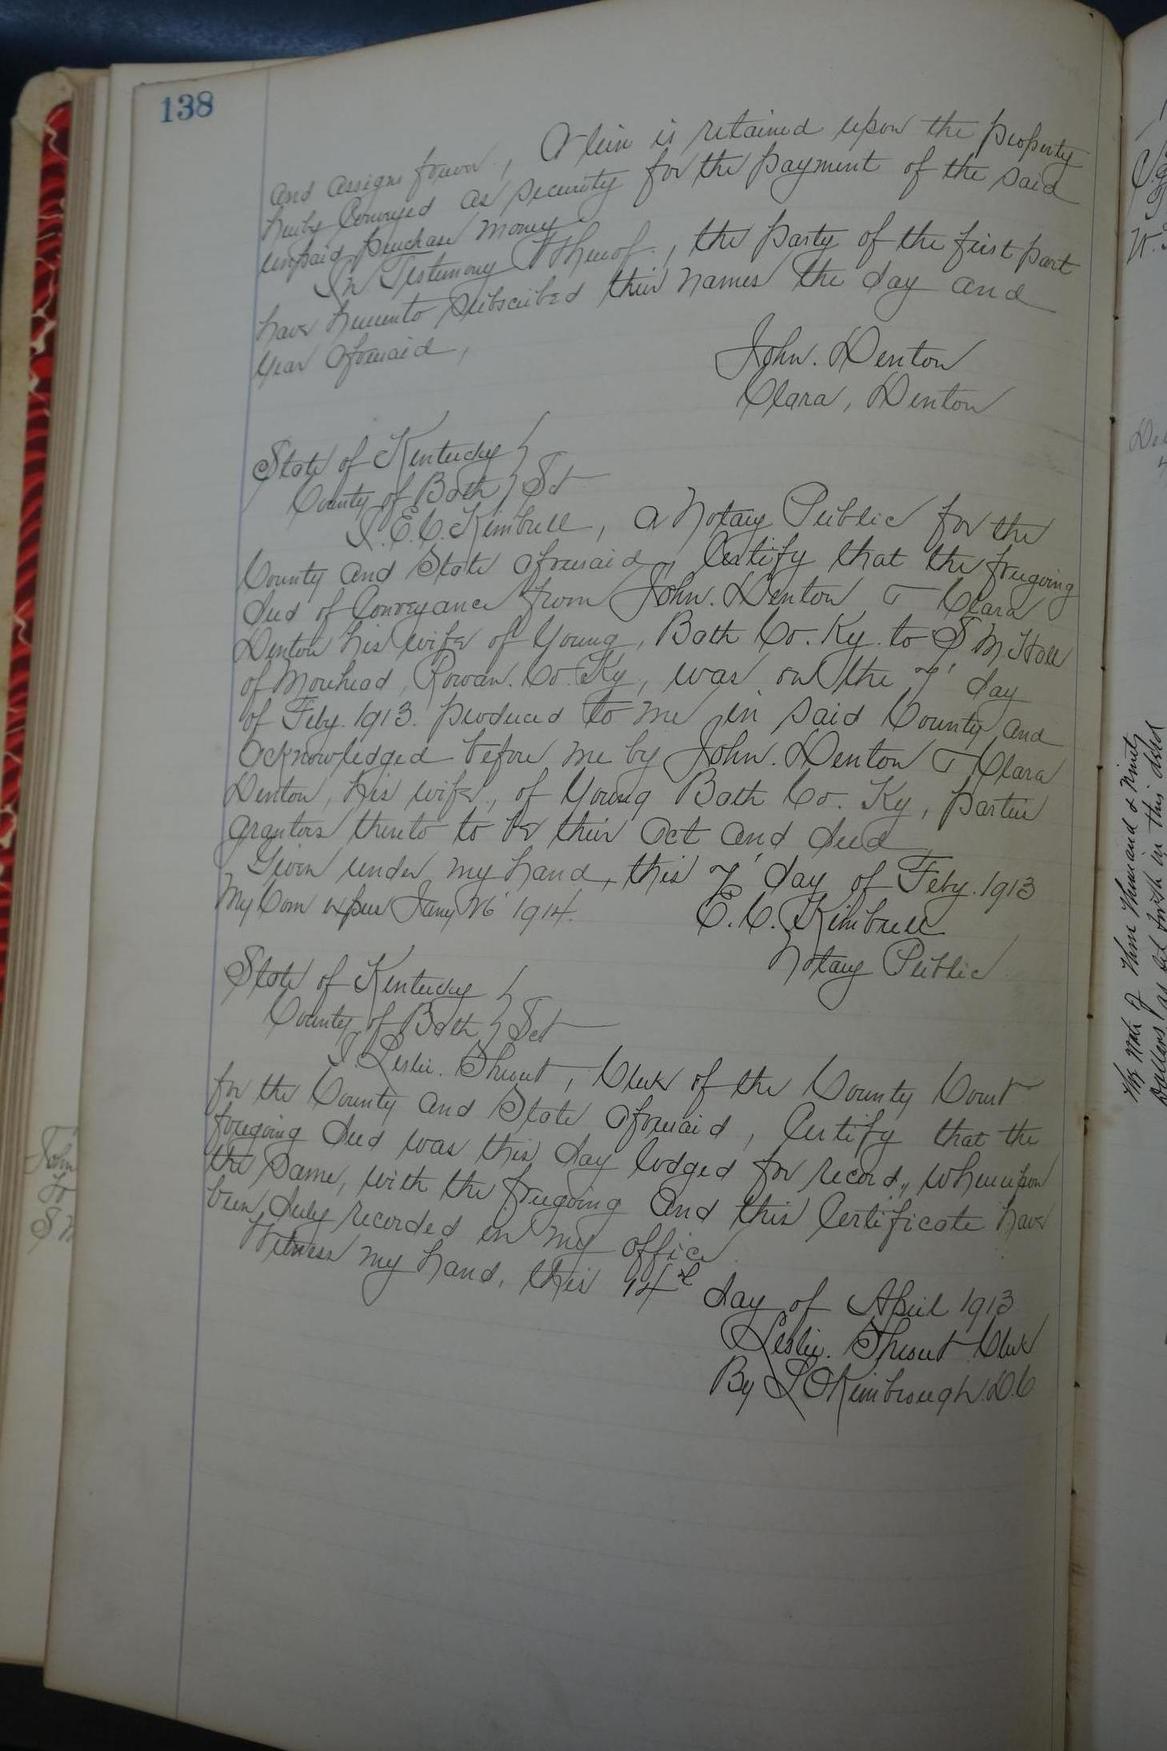 138
and assigns forever, A lein is retained upon the property
hereby Conveyed as security for the payment of the said
unpaid purchase money
In Testimony Whereof, the party of the first part
have hereunto subscribed their names the day and
year aforesaid,
John. Denton
Clara, Denton
State of Kentucky }
County of Bath } Sct
I. E. C. Kimbrell, a Notary Public for the
County and State aforesaid, Certify that the foregoing
deed of Conveyance from John. Denton & Clara
Denton his wife of Young, Bath Co. Ky. to S M. Hall
of Morehead, Rowan. Co. Ky, was on the 7' day
of Feby. 1913. produced to me in said County, and
acknowledged before me by John. Denton & Clara
Denton, his wife, of Young Bath Co. Ky, parties
grantors thereto to be their act and deed,
Given under my hand, this 7' day of Feby. 1913
My Com expires Jany 26' 1914. E. C. Kimbrell
Notary Public
State of Kentucky }
County of Bath } Sct
I Leslie. Shrout, Clerk of the County Court
for the County and State aforesaid, Certify that the
foregoing deed was this day lodged for record, whereupon
the same, with the foregoing and this Certificate have
been duly recorded in my office
Witness my hand, this 14th day of April 1913
Leslie. Shrout Clerk
By L Kimbrough. D. C
John
S M
note of three thousand & ninety
Dollars as set forth in this deed